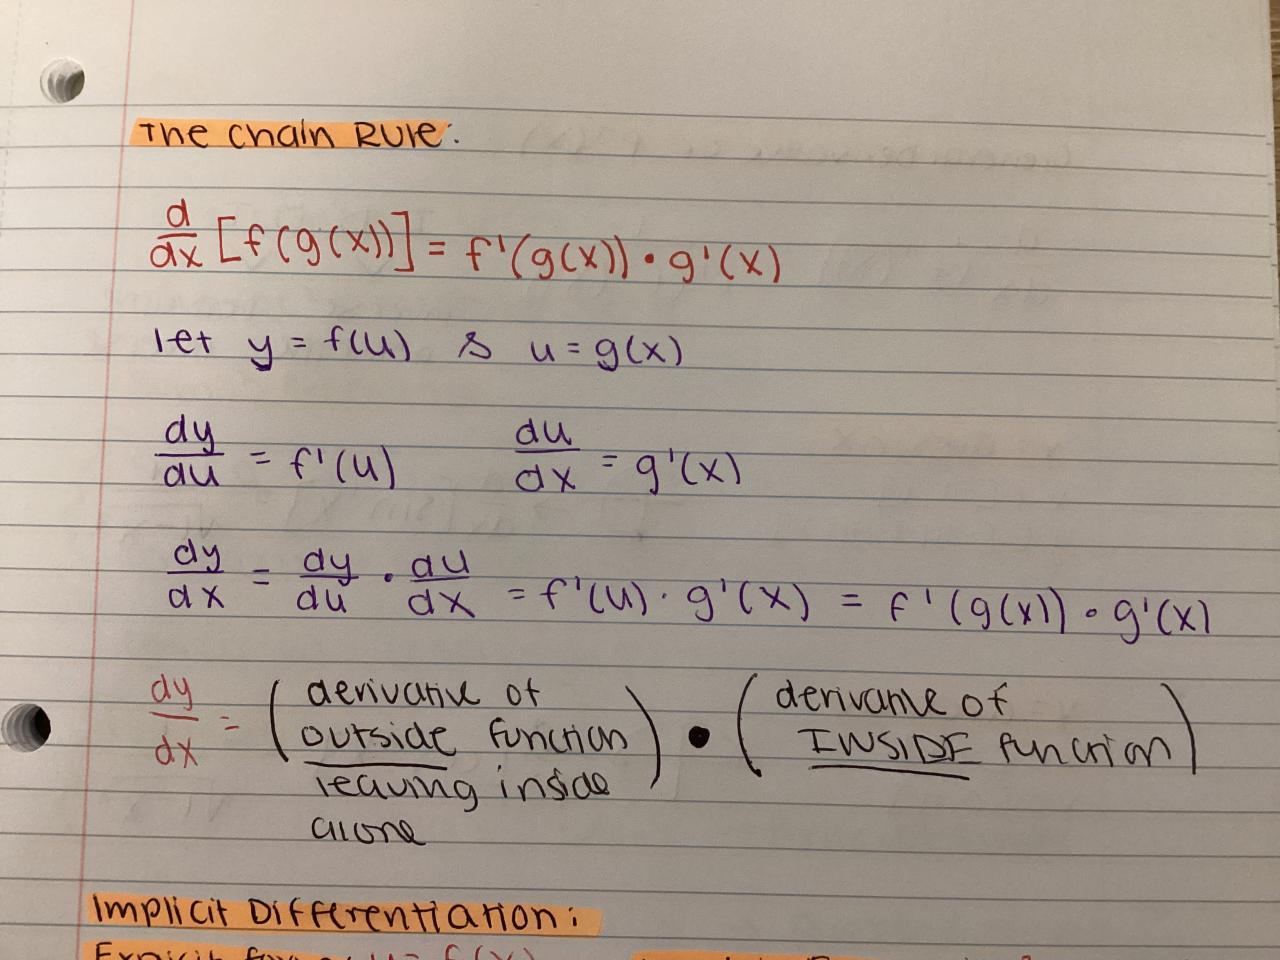 The Chain Rule:
d/dx [f(g(x))] = f'(g(x)) • g'(x)
let y = f(u) & u = g(x)
dy/du = f'(u) du/dx = g'(x)
dy/dx = dy/du · du/dx = f'(u) · g'(x) = f'(g(x)) • g'(x)
dy/dx = (derivative of outside function leaving inside alone) • (derivative of INSIDE function)
Implicit Differentiation:
Explicit form: y = f(x)